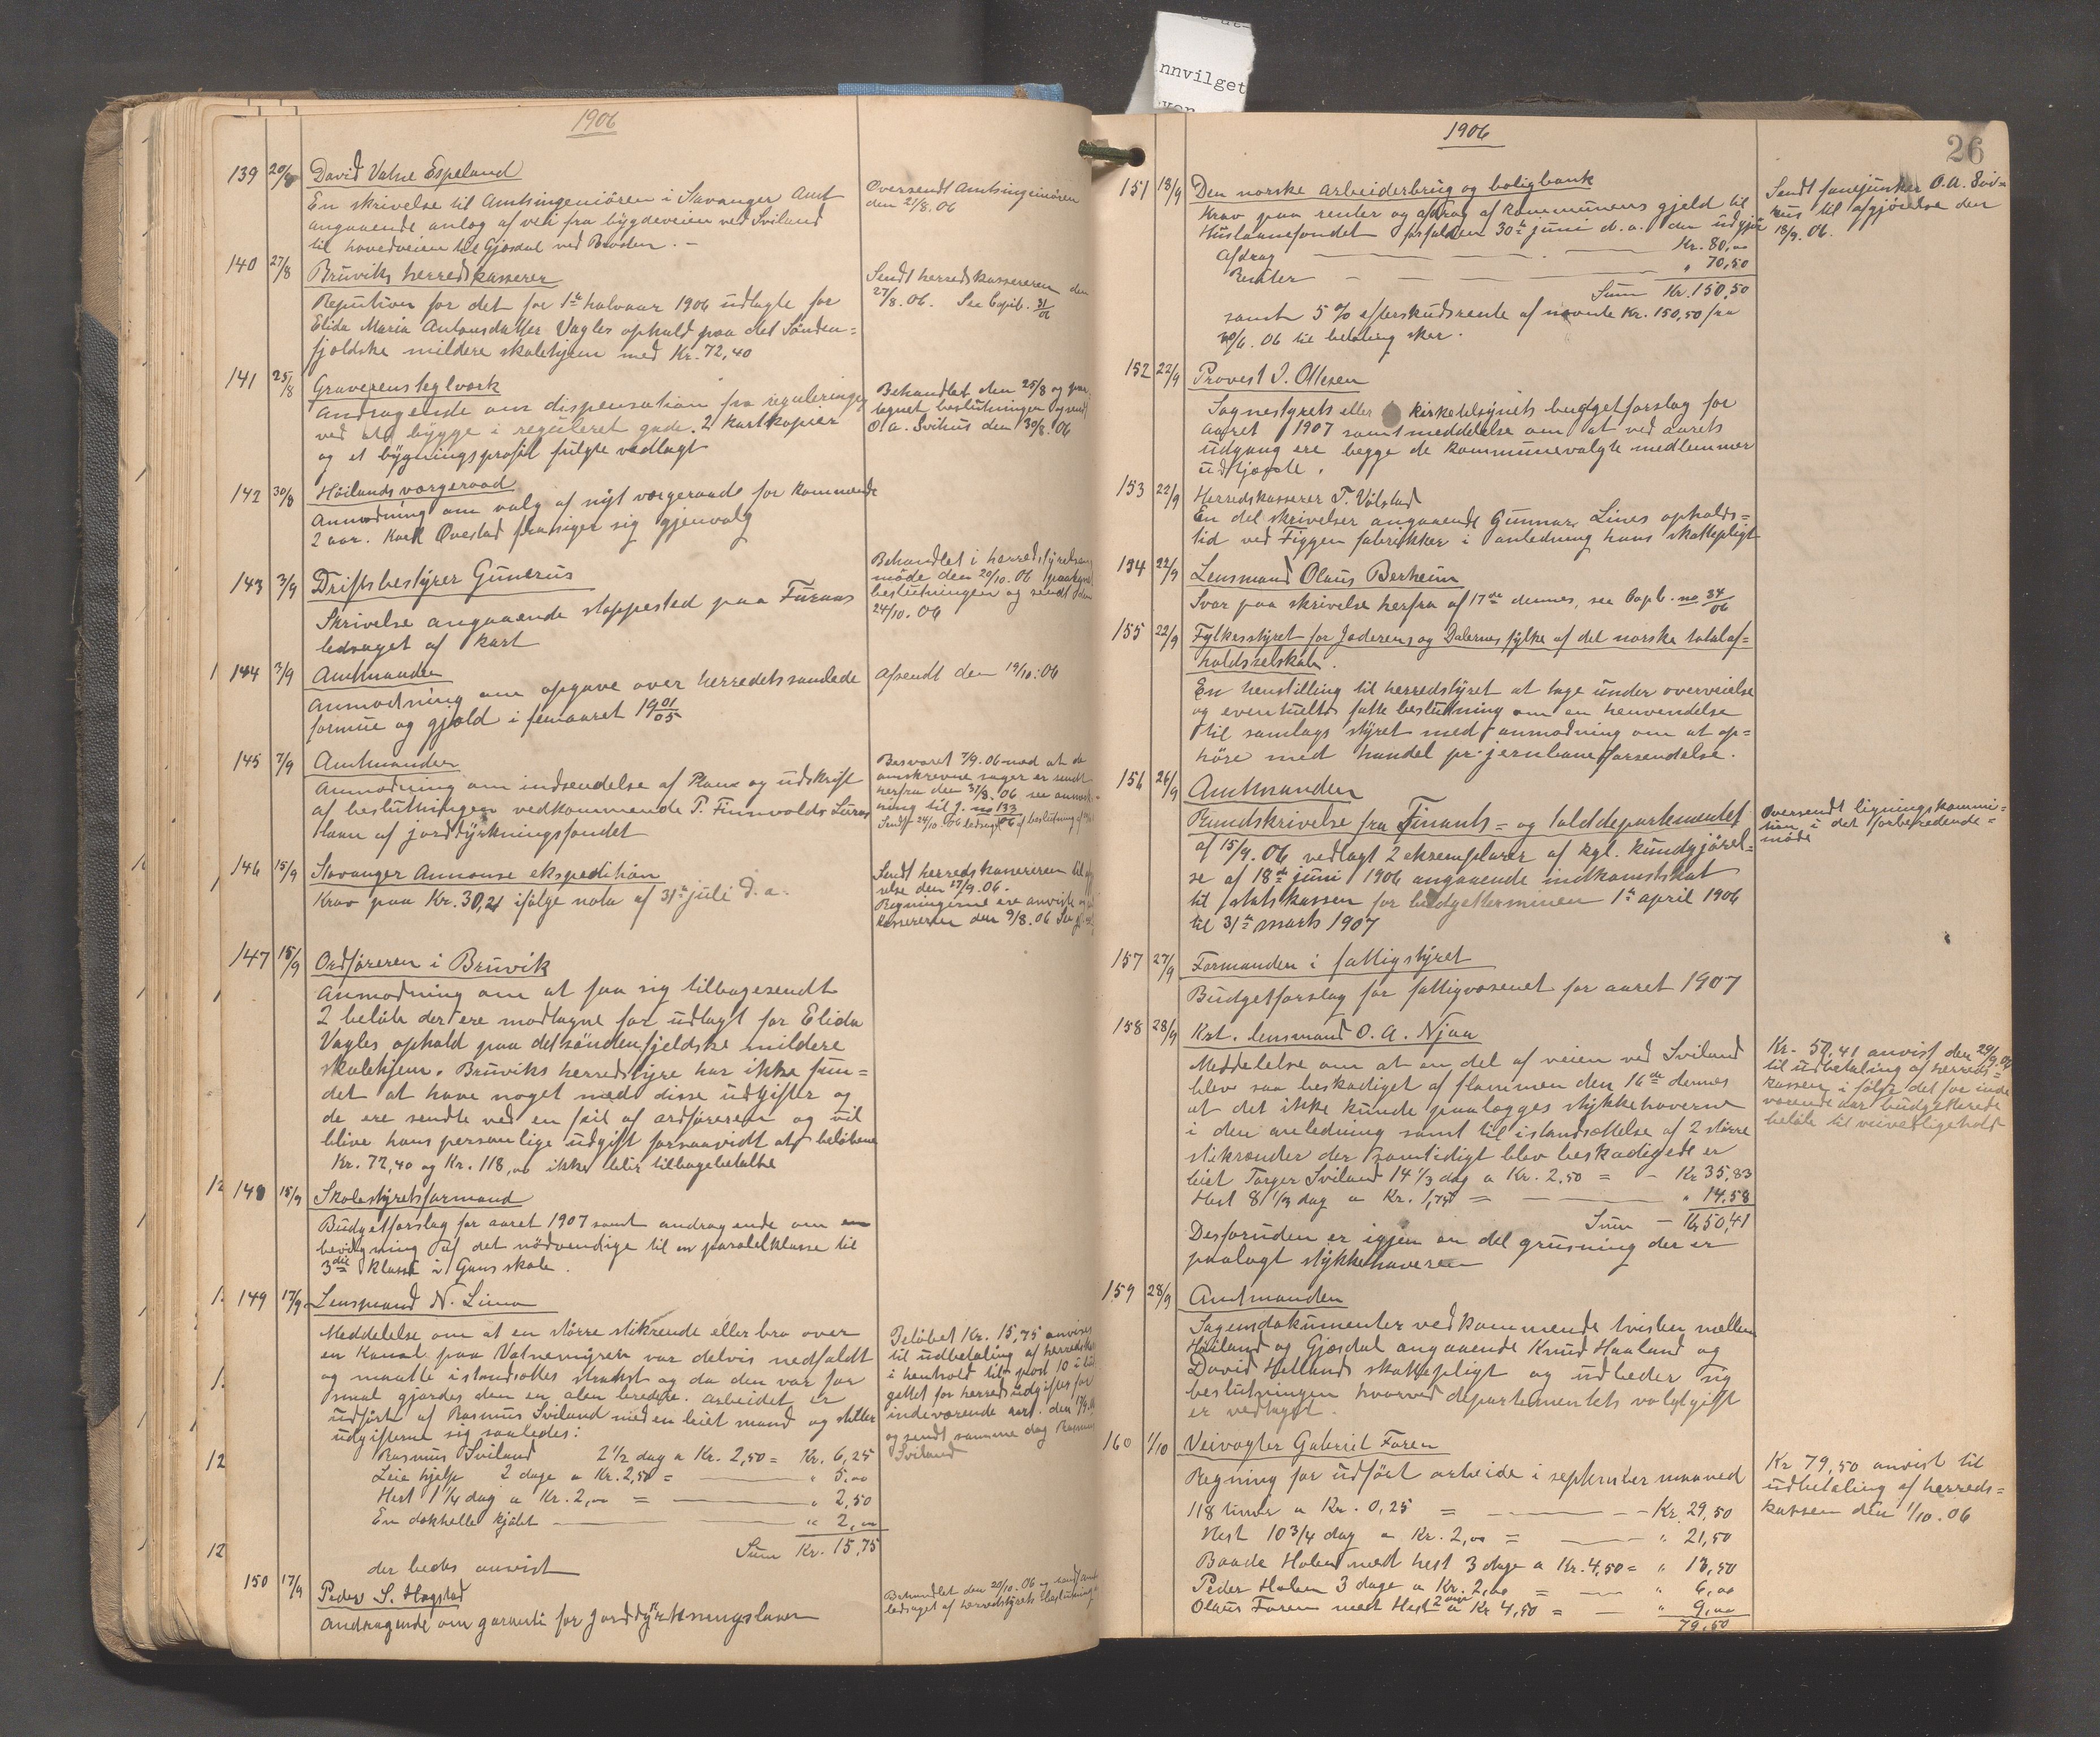 nnvilget
1906
139 20/8 David Vatne Espeland
En skrivelse til Amtsingeniören i Stavanger Amt
angaaende anlæg af vei fra bygdeveien ved Sviland
til hovedveien til Gjesdal ved Braaten. -
Oversendt Amtsingeniören
den 21/8. 06
140 27/8 Bruviks herredskasserer
for det for 1ste halvaar 1906 udlagte for
Elida Maria Antonsdatter Vagles ophold paa det Sönden=
fjeldske mildere skolehjem med Kr. 72,40
Sendt herredskassereren den
27/8. 06. Se Copib. 31/06
141 25/8 Graverens teglværk
Andragende om dispensation fra regulering
ved at bygge i reguleret gade. 2 kartkopier
og et bygningsprofil fulgte vedlagt
Behandlet den 25/8 og paa
tegnet beslutningen og sendt
O. A. Svihus den 30/8. 06
142 30/8 Höilands vergeraad
Anmodning om valg af nyt vergeraad for kommende
2 aar. Karl Ovestad frasiger sig gjenvalg
143 3/9 Driftsbestyrer Gunerus
Skrivelse angaaende stoppested paa Furaas
ledsaget af kart
Behandlet i herredstyrets
möde den 20/10. 06
beslutningen og sendt
24/10. 06
144 3/9 Amtmanden
Anmodning om opgave over herredets samlede
formue og gjæld i femaaret 1901/05
Afsendt den 19/10. 06
145 7/9 Amtmanden
Anmodning om indsendelse af Plane og udskrift
af beslutningen vedkommende T. Finnvolds Luras
laan af jorddyrkningsfondet
Besvaret 7/9. 06 med at de
omskrevne sager er sendt
herfra den 31/8. 06 se anmærk-
ning til J. no 133/06
Sendt 24/10. 06 ledsaget af beslutning
146 15/9 Stavanger Annonse ekspedition
Krav paa Kr. 30,21 ifölge nota af 31te juli d. a.
Sendt herredskassereren til
den 17/9. 06.
Regningerne ere anviste
kassereren den 9/8. 06
147 15/9 Ordföreren i Bruvik
Anmodning om at faa sig tilbagesendt
2 belöb der ere modtagne for udlagt for Elida
Vagles ophold paa det söndenfjeldske mildere
skolehjem. Bruviks herredstyre har ikke fun=
det at have noget med disse udgifter og
de ere sendte ved en feil af ordföreren og vil
blive hans personlige udgift forsaavidt at belöbene
Kr. 72,40 og Kr. 118,00 ikke blir tilbagebetalte
148 15/9 Skolestyretsformand
Budgetforslag for aaret 1907 samt andragende om en
bevilgning af det nödvendige til en paralelklasse til
3die klasse i Gans skole.
149 17/9 Lensmand N. Lima
Meddelelse om at en större stikrende eller bro over
en Kanal paa Vatnemyren var delvis nedfaldt
og maatte istandsættes strakst og da den var for
smal gjordes den en alen bredere. Arbeidet er
udfört af Rasmus Sviland med en leiet mand og stiller
udgifterne sig saaledes:
Rasmus Sviland 2 1/2 dag a Kr. 2,50 = Kr. 6,25
Leie hjelp 2 dage a Kr. 2,50 = " 5,00
Hest 1 1/4 dag a Kr. 2,00 = " 2,50
En dekhelle kjöbt " 2,00
Sum Kr. 15,75
der bedes anvist
Belöbet Kr. 15,75 anvises
til udbetaling af herredsk
i henhold til post 10 i bud
gettet for herredsudgifter for
indeværende aar. den 17/9.
og sendt samme dag Rasmus
Sviland
150 17/9 Peder S. Hogstad
Andragende om garanti for jorddyrkningslaan
Behandlet den 20/10. 06 og sendt amt
ledsaget af herredstyrets beslutning
1906
26
151 18/9 Den norske arbeiderbrug og boligbank
Krav paa renter og afdrag af kommunens gjeld til
Huslaanefondet forfalden 30te juni d. a. den udgjör
Afdrag Kr. 80,00
Renter " 70,50
Sum Kr. 150,50
samt 5 % efterskudsrente af nævnte Kr. 150,50 fra
30/6. 06 til betaling sker.
Sendt fanejunker O. A. Svi=
hus til afgjörelse den
18/9. 06.
152 22/9 Provest I. Ollesen
Sognestyrets eller kirketilsynets budgetforslag for
aaret 1907 samt meddelelse om at ved aarets
udgang ere begge de kommunevalgte medlemmer
udtjente.
153 22/9 Herredskasserer T. Völstad
En del skrivelser angaaende Gunnar Lines opholds=
tid ved Figgen fabrikker i anledning hans skattepligt
154 22/9 Lensmand Olaus Berheim
Svar paa skrivelse herfra af 17de dennes, se Copb. no 34/06
155 22/9 Fylkesstyret for Jæderens og Dalernes fylke af det norske totalaf=
holdsselskab.
En henstilling til herredstyret at tage under overveielse
og eventuelt fatte beslutning om en henvendelse
til samlags styret med anmodning om at op=
höre med handel pr. jernbaneforsendelse.
156 26/9 Amtmanden
Rundskrivelse fra Finants= og tolddepartementet
af 15/9. 06 vedlagt 2 eksemplarer af kgl. kundgjörel=
se af 18de juni 1906 angaaende indkomstskat
til statskassen for budgetterminen 1te april 1906
til 31te marts 1907
Oversendt ligningskommi=
sion i det forberedende=
möde
157 27/9 Formanden i fattigstyret
Budgetforslag for fattigvæsenet for aaret 1907
158 28/9 Kst. lensmand O. A. Njaa
Meddelelse om at en del af veien ved Sviland
blev saa beskadiget af flommen den 16de dennes
at det ikke kunde paalægges stykkehaverne
i den anledning samt til istandsættelse af 2 större
stikrender der samtidigt blev beskadigede er
leiet Torger Sviland 14 1/3 dag a Kr. 2,50 = - Kr 35,83
Hest 8 1/3 dag a Kr. 1,75 = " 14,58
Sum - Kr 50,41
Desforuden er igjen en del grusning der er
paalagt stykkehaveren
Kr. 50,41 anvist den 29/9. 06
til udbetaling af herreds=
kassen i fölge det for inde
værende aar budgetterede
belöb til veivedligehold
159 28/9 Amtmanden
Sagensdokumenter vedkommende tvisten mellem
Höiland og Gjesdal angaaende Knud Haaland og
David Hetlands skattepligt og udbeder sig
beslutningen hvorved departementets valgtgift
er vedtaget.
160 1/10 Veivogter Gabriel Foren
Regning for udfört arbeide i september maaned
118 timer a Kr. 0,25 = - Kr. 29,50
Hest 10 3/4 dag a Kr. 2,00 = " 21,50
Baade Holen med hest 3 dage a Kr. 4,50 = " 13,50
Peder Holen 3 dage a Kr. 2,00 = " 6,00
Olaus Foren med Hest 2 dage a Kr 4,50 = " 9,00
79,50
Kr 79,50 anvist til
udbetaling af herreds=
kassen den 1/10. 06